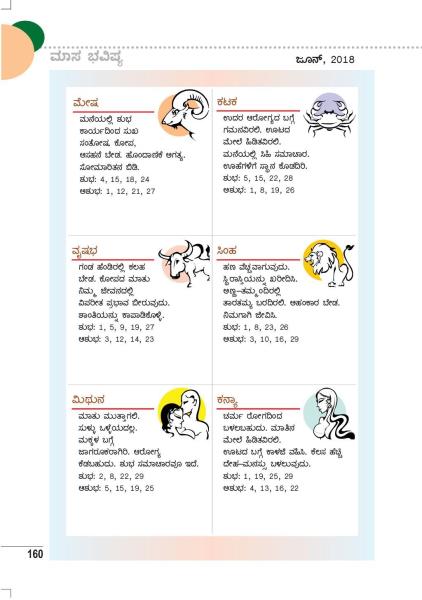 ಮಾಸ ಭವಿಷ್ಯ
ಜೂನ್, 2018
ಮೇಷ
ಮನೆಯಲ್ಲಿ ಶುಭ
ಕಾರ್ಯದಿಂದ ಸುಖ
ಸಂತೋಷ. ಕೋಪ,
ಅಸಹನೆ ಬೇಡ. ಹೊಂದಾಣಿಕೆ ಅಗತ್ಯ.
ಸೋಮಾರಿತನ ಬಿಡಿ.
ಶುಭ: 4, 15, 18, 24
ಅಶುಭ: 1, 12, 21, 27
ಕಟಕ
ಉದರ ಆರೋಗ್ಯದ ಬಗ್ಗೆ
ಗಮನವಿರಲಿ. ಊಟದ
ಮೇಲೆ ಹಿಡಿತವಿರಲಿ.
ಮನೆಯಲ್ಲಿ ಸಿಹಿ ಸಮಾಚಾರ.
ಊಹೆಗಳಿಗೆ ಸ್ಥಾನ ಕೊಡದಿರಿ.
ಶುಭ: 5, 15, 22, 28
ಅಶುಭ: 1, 8, 19, 26
ವೃಷಭ
ಗಂಡ ಹೆಂಡಿರಲ್ಲಿ ಕಲಹ
ಬೇಡ. ಕೋಪದ ಮಾತು
ನಿಮ್ಮ ಜೀವನದಲ್ಲಿ
ವಿಪರೀತ ಪ್ರಭಾವ ಬೀರುವುದು.
ಶಾಂತಿಯನ್ನು ಕಾಪಾಡಿಕೊಳ್ಳಿ.
ಶುಭ: 1, 5, 9, 19, 27
ಅಶುಭ: 3, 12, 14, 23
ಸಿಂಹ
ಹಣ ವೆಚ್ಚವಾಗುವುದು.
ಸ್ಥಿರಾಸ್ತಿಯನ್ನು ಖರೀದಿಸಿ.
ಅಣ್ಣ-ತಮ್ಮಂದಿರಲ್ಲಿ
ತಾರತಮ್ಯ ಬರದಿರಲಿ. ಅಹಂಕಾರ ಬೇಡ.
ನಿಮಗಾಗಿ ಜೀವಿಸಿ.
ಶುಭ: 1, 8, 23, 26
ಅಶುಭ: 3, 10, 16, 29
ಮಿಥುನ
ಮಾತು ಮುತ್ತಾಗಲಿ.
ಸುಳ್ಳು ಒಳ್ಳೆಯದಲ್ಲ.
ಮಕ್ಕಳ ಬಗ್ಗೆ
ಜಾಗರೂಕರಾಗಿರಿ. ಆರೋಗ್ಯ
ಕೆಡಬಹುದು. ಶುಭ ಸಮಾಚಾರವೂ ಇದೆ.
ಶುಭ: 2, 8, 22, 29
ಅಶುಭ: 5, 15, 19, 25
ಕನ್ಯಾ
ಚರ್ಮ ರೋಗದಿಂದ
ಬಳಲಬಹುದು. ಮಾತಿನ
ಮೇಲೆ ಹಿಡಿತವಿರಲಿ.
ಊಟದ ಬಗ್ಗೆ ಕಾಳಜಿ ವಹಿಸಿ. ಕೆಲಸ ಹೆಚ್ಚಿ
ದೇಹ-ಮನಸ್ಸು ಬಳಲುವುದು.
ಶುಭ: 1, 19, 25, 29
ಅಶುಭ: 4, 13, 16, 22
160